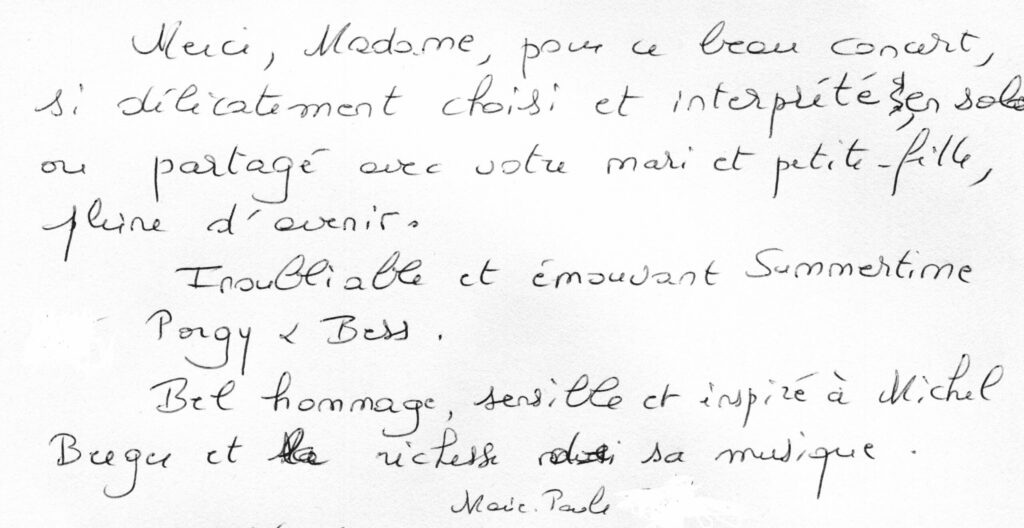 Merci, Madame, pour ce beau concert,
si délicatement choisi et interprété, en solo
ou partagé avec votre mari et petite-fille,
pleine d'avenir.
Inoubliable et émouvant Summertime
Porgy & Bess.
Bel hommage, sensible et inspiré à Michel
Berger et la richesse de sa musique.
Marie-Paule